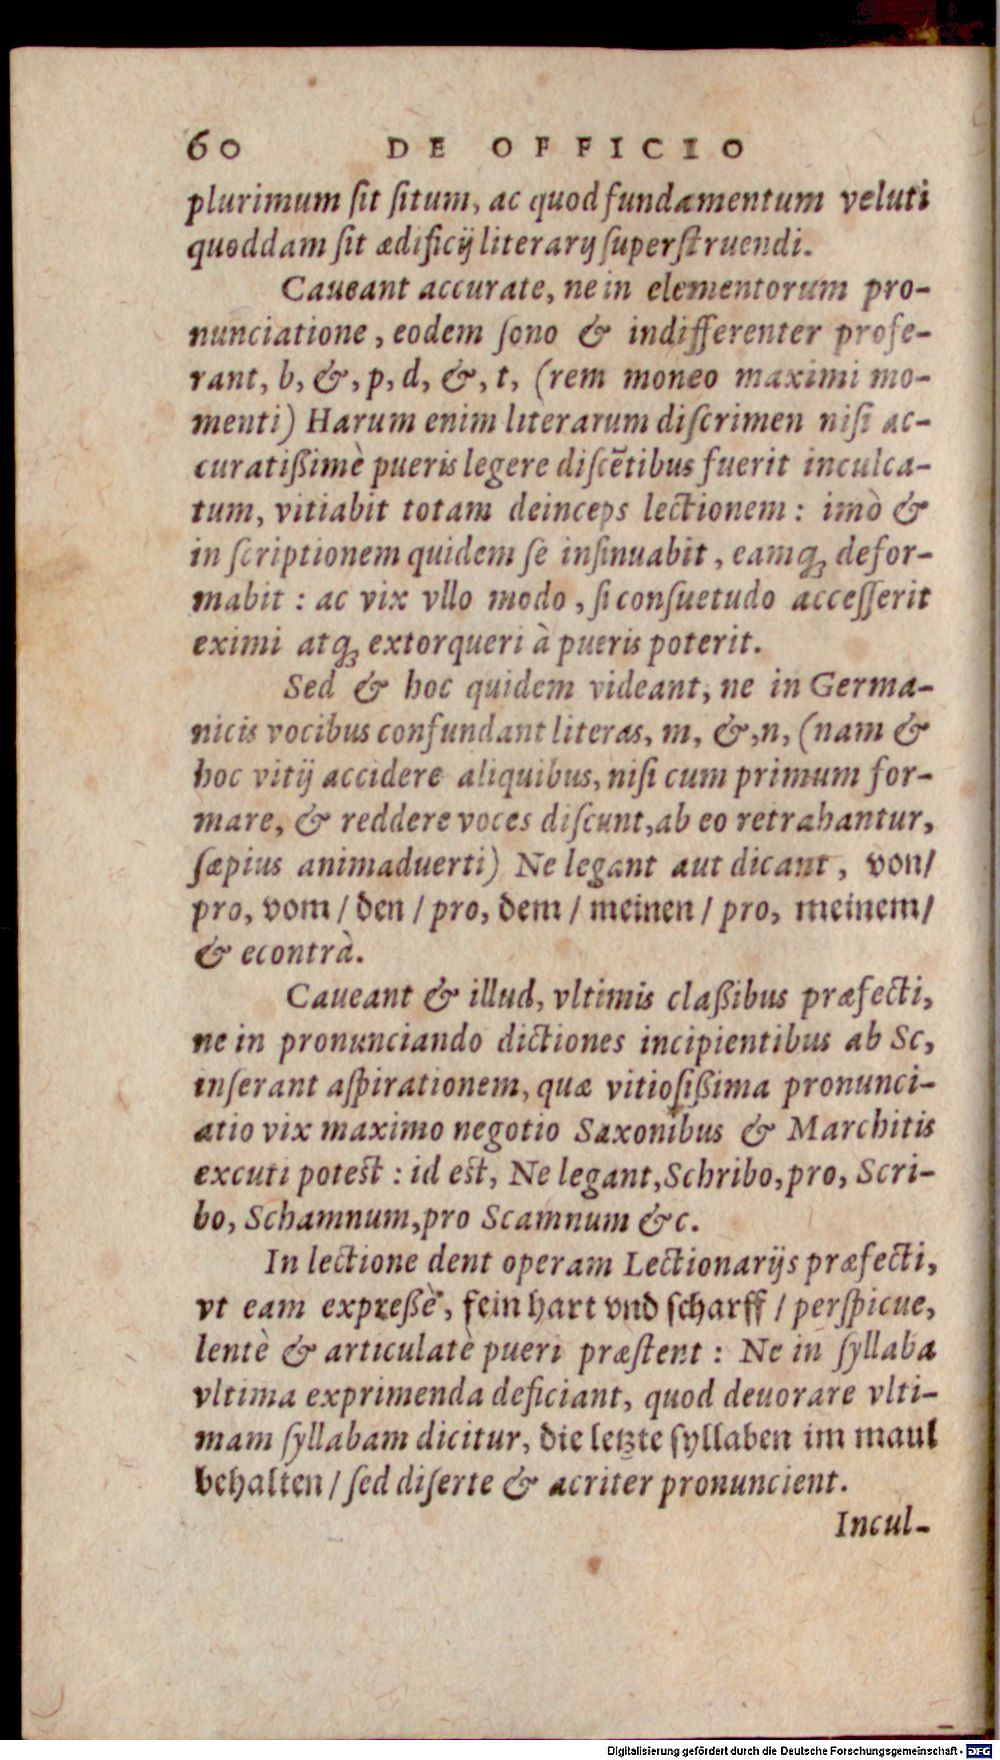 60 DE OFFICIO
plurimum ſit ſitum, ac quod fundamentum veluti
quoddam ſit ædificij literarij ſuperſtruendi.
Caueant accurate, ne in elementorum pro-
nunciatione, eodem ſono & indifferenter profe-
rant, b, &, p, d, &, t, (rem moneo maximi mo-
menti) Harum enim literarum diſcrimen niſi ac-
curatißimè pueris legere diſcẽtibus fuerit inculca-
tum, vitiabit totam deinceps lectionem: imò &
in ſcriptionem quidem ſe inſinuabit, eamq́ꝫ defor-
mabit: ac vix vllo modo, ſi conſuetudo acceſſerit
eximi atqꝫ extorqueri à pueris poterit.
Sed & hoc quidem videant, ne in Germa-
nicis vocibus confundant literas, m, &, n, (nam &
hoc vitij accidere aliquibus, niſi cum primum for-
mare, & reddere voces diſcunt, ab eo retrahantur,
ſæpius animaduerti) Ne legant aut dicant, von/
pro, vom / den / pro, dem / meinen / pro, meinem/
& econtrà.
Caueant & illud, vltimis claßibus præfecti,
ne in pronunciando dictiones incipientibus ab Sc,
inſerant aſpirationem, quæ vitioſißima pronunci-
atio vix maximo negotio Saxonibus & Marchitis
excuti potest: id est, Ne legant, Schribo, pro, Scri-
bo, Schamnum, pro Scamnum &c.
In lectione dent operam Lectionarijs præfecti,
vt eam expreßè, fein hart vnd ſcharff / perſpicue,
lentè & articulatè pueri præſtent: Ne in ſyllaba
vltima exprimenda deficiant, quod deuorare vlti-
mam ſyllabam dicitur, die letzte ſyllaben im maul
behalten / ſed diſerte & acriter pronuncient.
Incul-
Digitalisierung gefördert durch die Deutsche Forschungsgemeinschaft - DFG